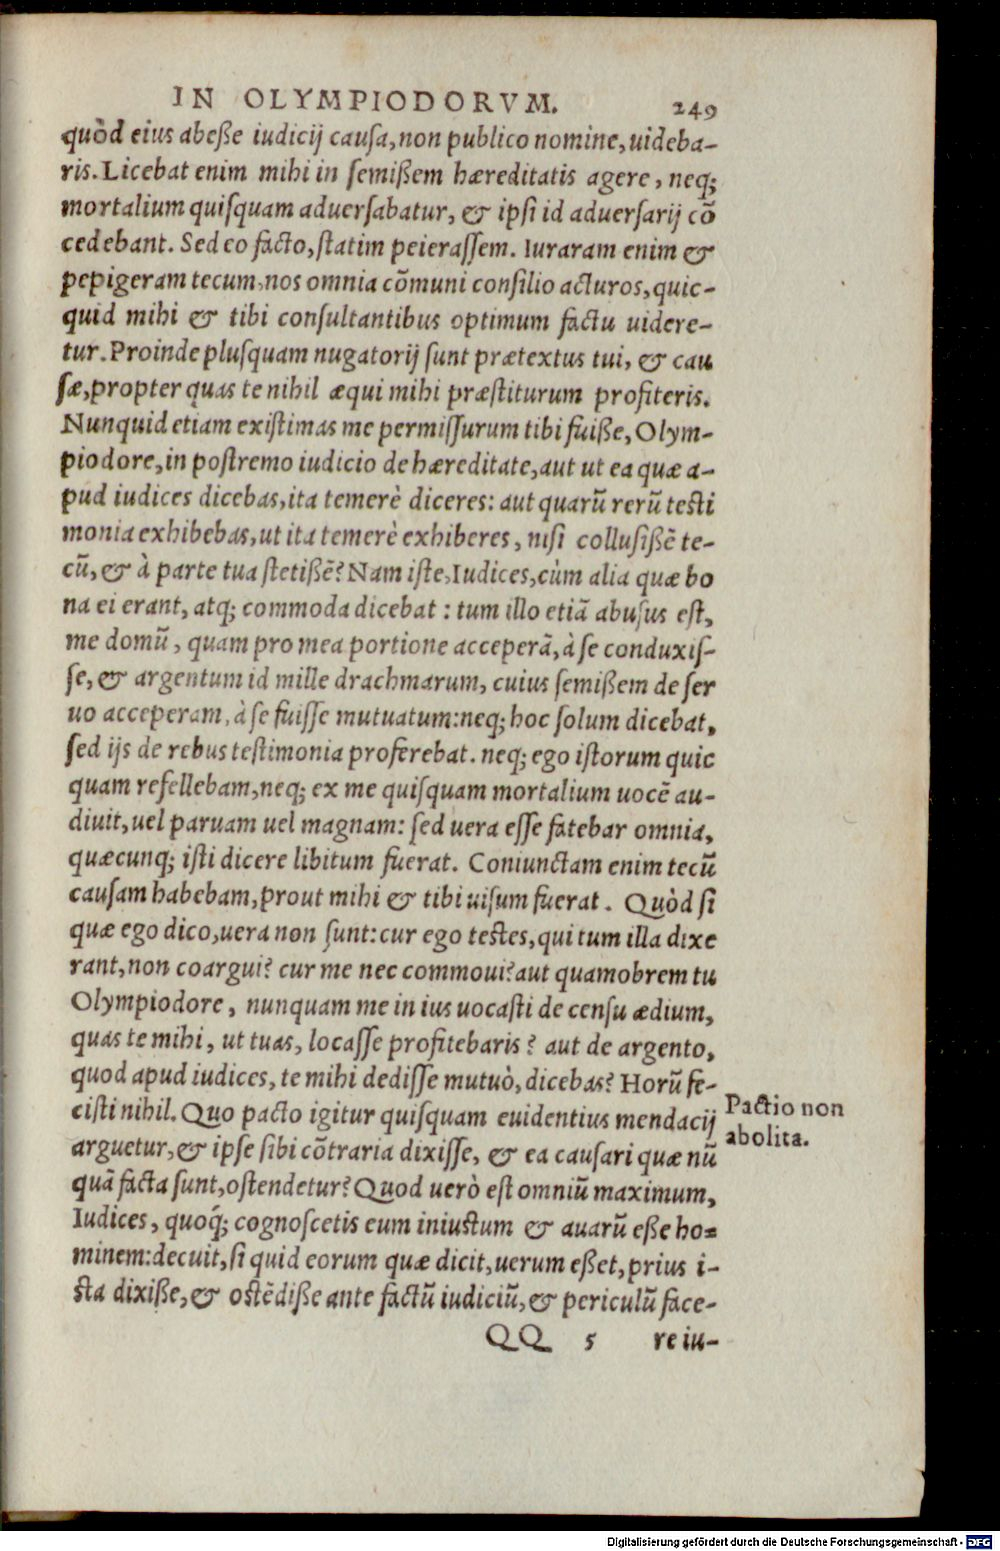 IN OLYMPIODORVM. 249
quòd eius abeße iudicij causa, non publico nomine, uideba-
ris. Licebat enim mihi in semißem hæreditatis agere, neq;
mortalium quisquam aduersabatur, & ipsi id aduersarij cõ
cedebant. Sed eo facto, statim peierassem. Iuraram enim &
pepigeram tecum, nos omnia cõmuni consilio acturos, quic-
quid mihi & tibi consultantibus optimum factu uidere-
tur. Proinde plusquam nugatorij sunt prætextus tui, & cau
sæ, propter quas te nihil æqui mihi præstiturum profiteris.
Nunquid etiam existimas me permissurum tibi fuiße, Olym-
piodore, in postremo iudicio de hæreditate, aut ut ea quæ a-
pud iudices dicebas, ita temerè diceres: aut quarũ rerũ testi
monia exhibebas, ut ita temerè exhiberes, nisi collusißẽ te-
cũ, & à parte tua stetißẽ? Nam iste, Iudices, cùm alia quæ bo
na ei erant, atq; commoda dicebat: tum illo etiã abusus est,
me domũ, quam pro mea portione acceperã, à se conduxis-
se, & argentum id mille drachmarum, cuius semißem de ser
uo acceperam, à se fuisse mutuatum: neq; hoc solum dicebat,
sed ijs de rebus testimonia proferebat. neq; ego istorum quic
quam refellebam, neq; ex me quisquam mortalium uocẽ au-
diuit, uel paruam uel magnam: sed uera esse fatebar omnia,
quæcunq; isti dicere libitum fuerat. Coniunctam enim tecũ
causam habebam, prout mihi & tibi uisum fuerat. Quòd si
quæ ego dico, uera non sunt: cur ego testes, qui tum illa dixe
rant, non coargui? cur me nec commoui? aut quamobrem tu
Olympiodore, nunquam me in ius uocasti de censu ædium,
quas te mihi, ut tuas, locasse profitebaris? aut de argento,
quod apud iudices, te mihi dedisse mutuò, dicebas? Horũ fe-
cisti nihil. Quo pacto igitur quisquam euidentius mendacij
arguetur, & ipse sibi cõtraria dixisse, & ea causari quæ nũ
quã facta sunt, ostendetur? Quod uerò est omniũ maximum,
Iudices, quoq́; cognoscetis eum iniustum & auarũ eße ho-
minem: decuit, si quid eorum quæ dicit, uerum eßet, prius i-
sta dixiße, & ostẽdiße ante factũ iudiciũ, & periculũ face-
QQ 5 re iu-
Pactio non
abolita.
Digitalisierung gefördert durch die Deutsche Forschungsgemeinschaft - DFG